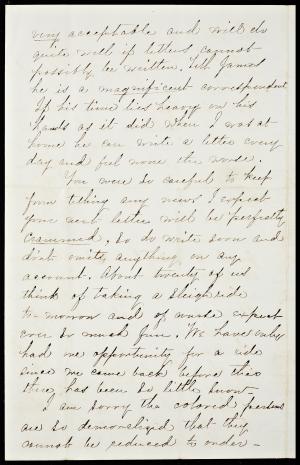 very acceptable and will do
quite well if letters cannot
possibly be written. Tell James
he is a magnificent correspondent
If his time lies heavy on his
hands as it did when I was at
home he can write a letter every
day and feel none the worse.
You were so careful to keep
from telling any news I expect
your next letter will be perfectly
crammed, so do write soon and
don't omit anything on any
account. About twenty of us
think of taking a sleigh ride
to-morrow and of course expect
ever so much fun. We have only
had one opportunity for a ride
since we came back before this
there has been so little snow—
I am sorry the colored persons
are so demoralized that they
cannot be reduced to order—